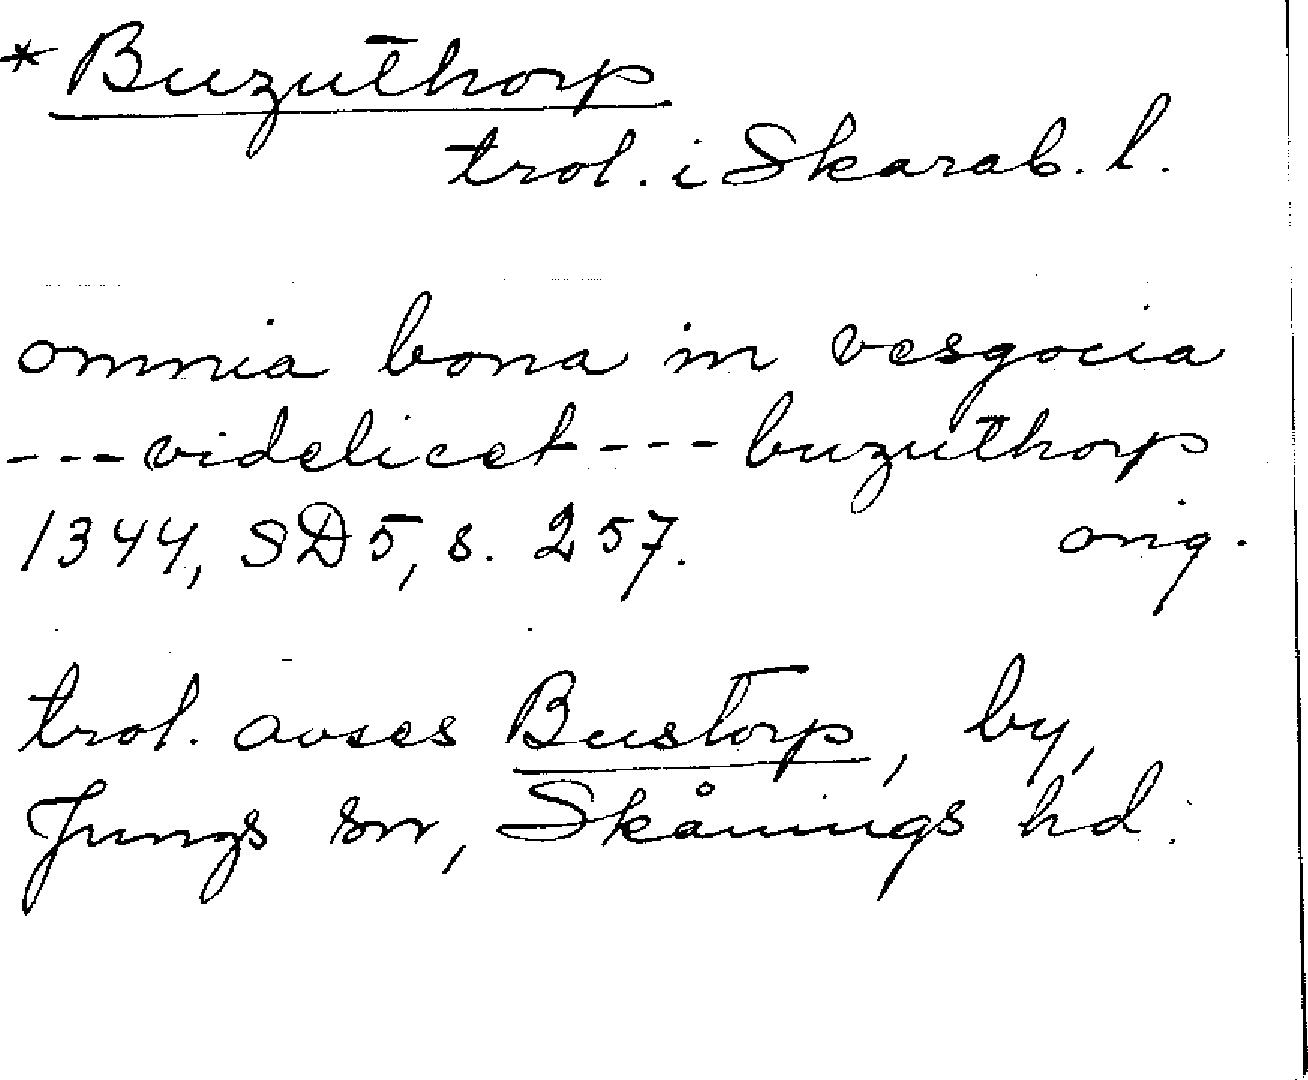 * Buzuthorp
trol. i Skarab. l.
omnia bona in vesgocia
---videlicet---buzuthorp
1344, SD5, s. 257. orig.
trol. avses Bustorp, by,
Jungs sn, Skånings hd.